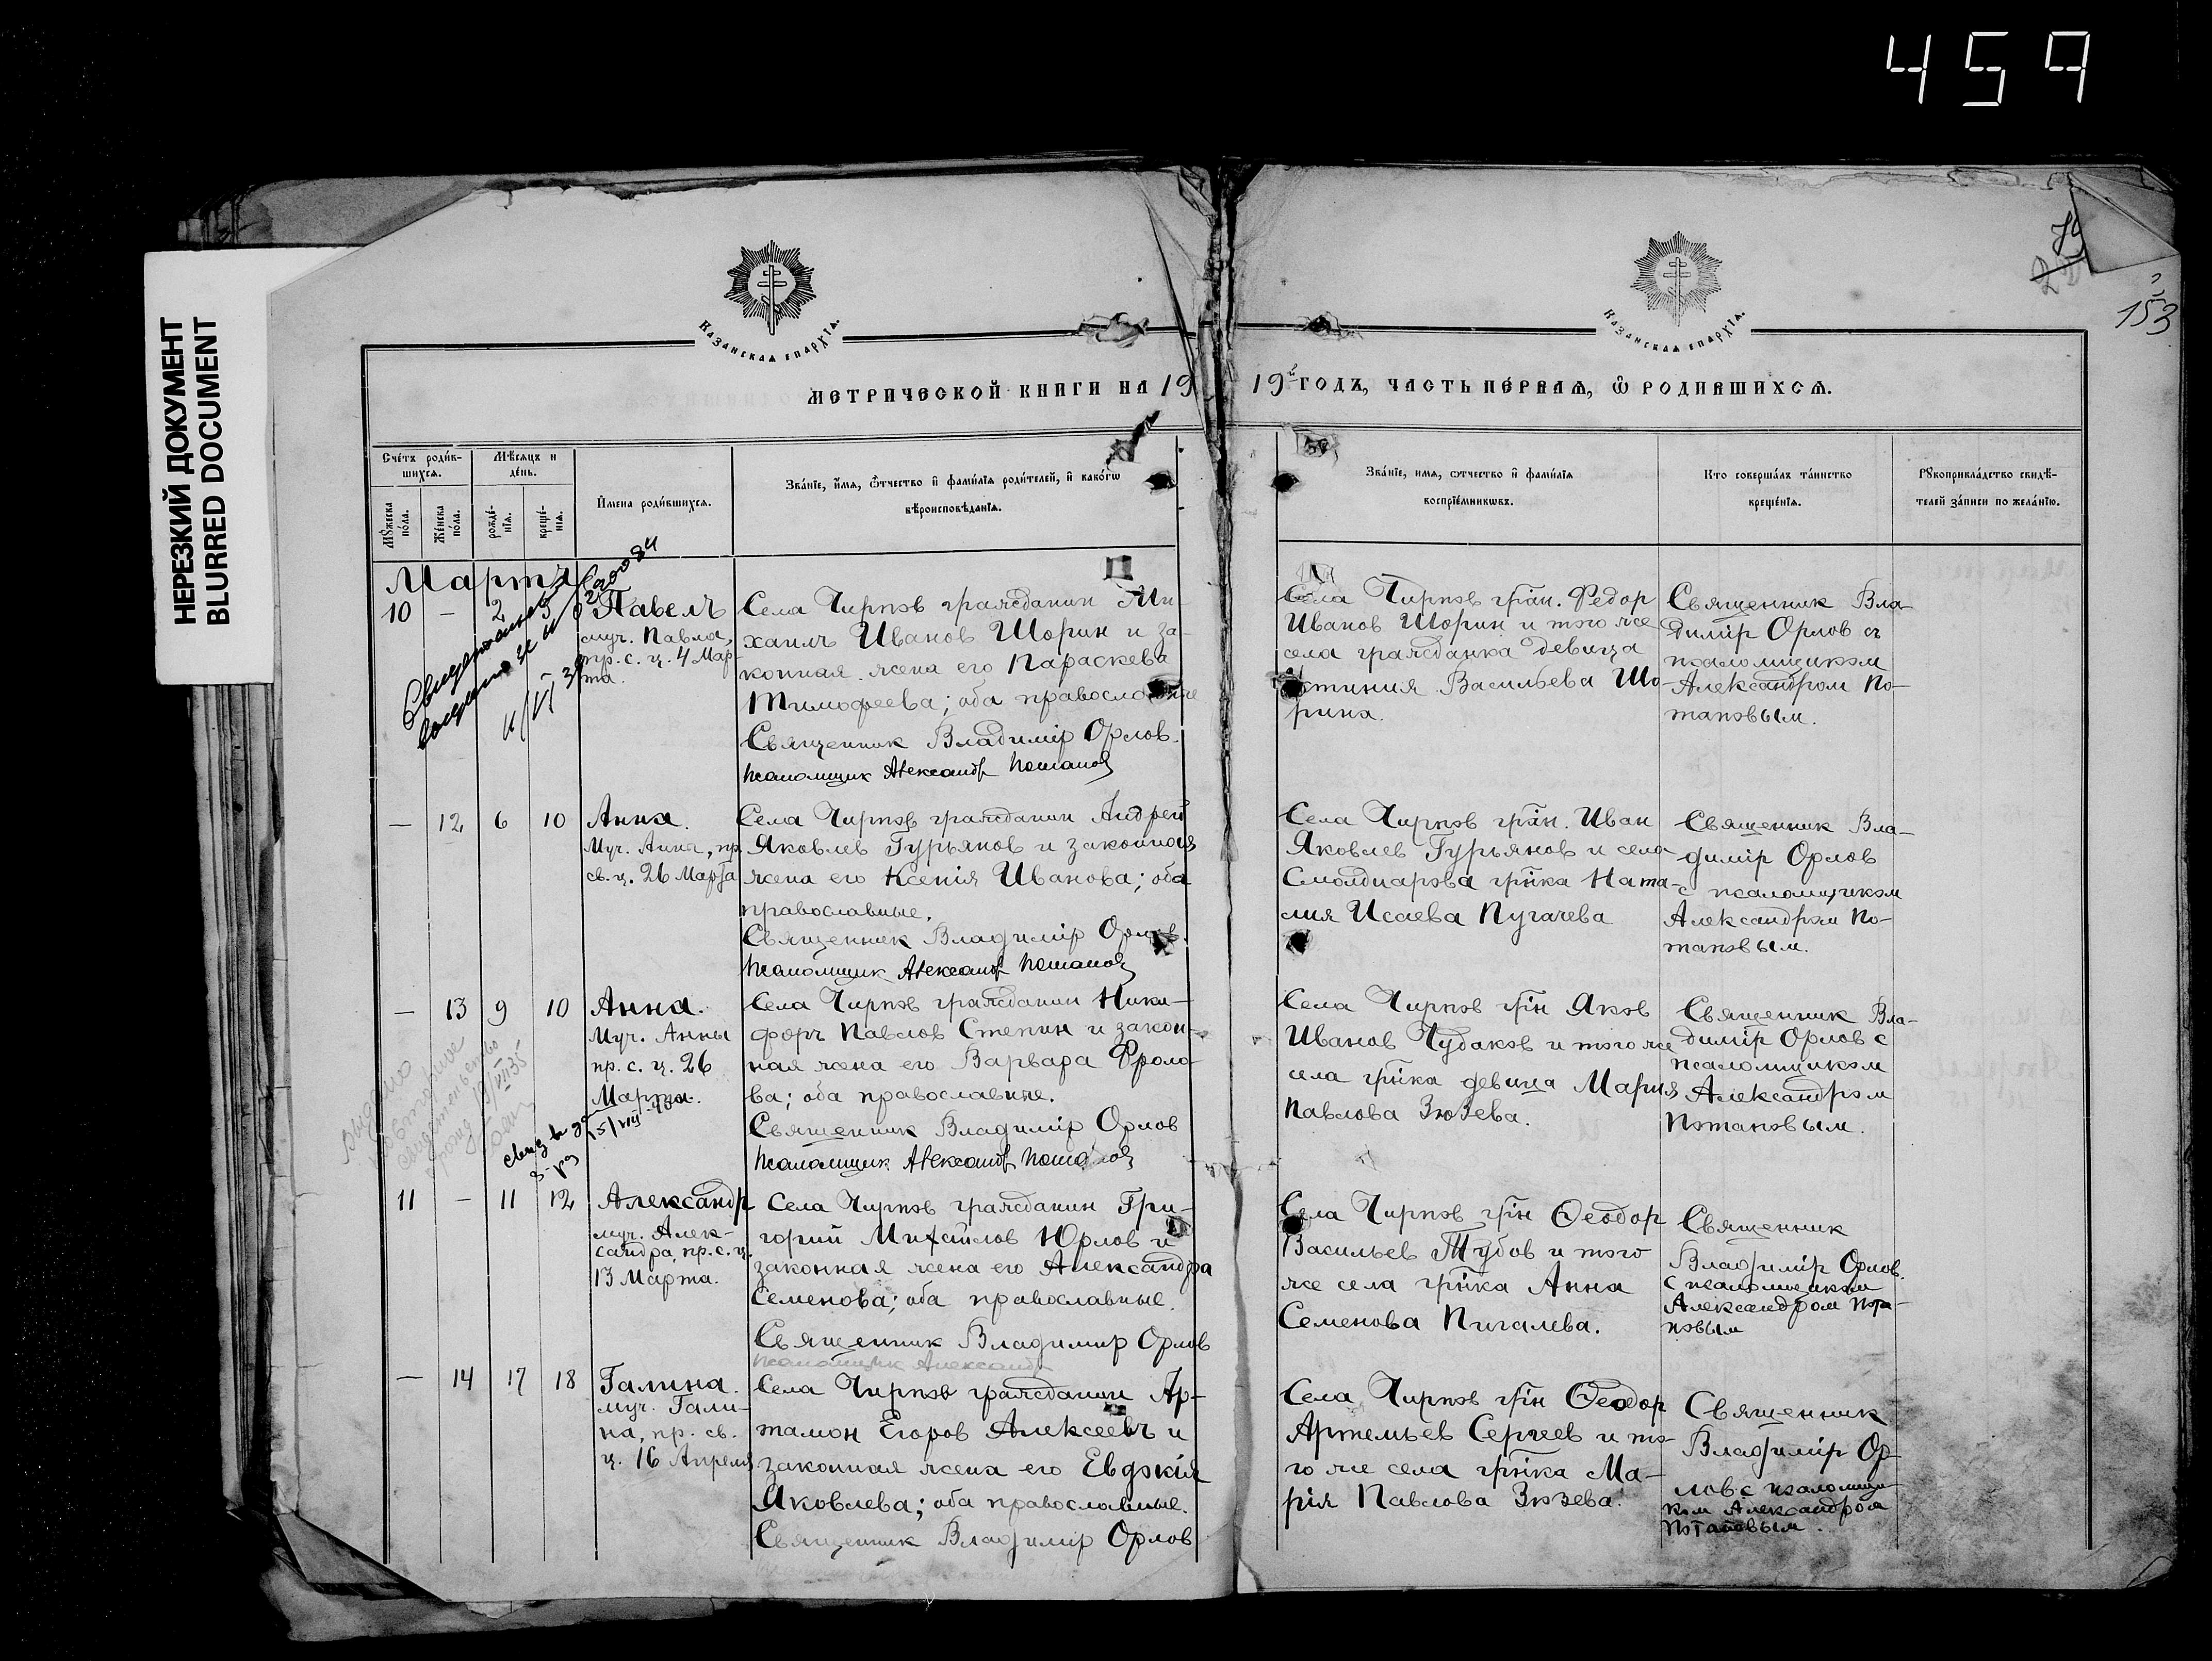 459
НЕРЕЗКИЙ ДОКУМЕНТ
BLURRED DOCUMENT
153
Казанская епархїѧ.
Казанская епархїѧ.
МЕТРИЧЕСКОЙ КНИГИ НА 19
19й ГОДЪ, ЧАСТЬ ПЕРВАѦ, Ѿ РОДИВШИХСѦ.
Счетъ родив-
шихсѧ.
Мѣсѧцъ и
день.
Мꙋжеска
пола.
Женска
пола.
рожде-
нїѧ.
креще-
нїѧ.
Имена родившихсѧ.
Званїе, имѧ, ѻтчество и фамилїѧ родителей, и какогѡ
вѣроисповѣданїѧ.
Званїе, имѧ, ѻтчество и фамилїѧ
воспрїемникѡвъ.
Кто совершалъ таинство
крещенїѧ.
Рꙋкоприкладство свидѣ-
телей записи по желанїю.
Мартъ
10 — 2
Павелъ
муч. Павла,
пр. с. ц. 4 Мар-
та.
Села Чирков гражданин Ми-
хаилъ Иванов Шорин и за-
конная жена его Параскева
Тимофеева; оба православные
Священник Владимір Орлов.
Псаломщик Александр Потапов
Села Чирков грān. Федор
Иванов Шорин и того же
села гражданка девица
Васильева Шо-
рина.
Священник Вла-
димір Орлов съ
псаломщиком
Александром По-
таповым.
— 12 6 10
Анна.
Муч. Анна, пр.
св. ц. 26 Марта
Села Чирков гражданин Андрей
Яковлев Гурьянов и законная
жена его Ксенія Иванова; оба
православные.
Священник Владимір Орлов.
Псаломщик Александр Потапов
Села Чирков грāн. Иван
Яковлев Гурьянов и села
Смолдиарова гр̄ка Ната-
лия Исаева Пугачева
Священник Вла-
димір Орлов
с псаломщиком
Александром По-
таповым.
— 13 9 10
Анна.
Муч. Анны
пр. с. ц. 26
Марта.
Села Чирков гражданин Ники-
форъ Павлов Степин и закон-
ная жена его Варвара Фроло-
ва; оба православне.
Священник Владимір Орлов
Псаломщик Александр Потапов
Села Чирков гр̄ін Яков
Иванов Чудаков и того же
села гр̄ка девица Мария
Павлова Зюзева.
Священник Вла-
димір Орлов с
псаломщиком
Александром
Потаповым.
11 — 11 12
Александр
муч. Алек-
сандра, пр. с. ц.
13 Марта.
Села Чирков гражданин Гри-
горий Михайлов Юрлов и
законная жена его Александра
Семенова; оба православные.
Священник Владимир Орлов
Псаломщик Александр
Села Чирков гр̄ін Ѳеодор
Васильев Тубов и того
же села гр̄ка Анна
Семенова Пигалева.
Священник
Владимір Орлов.
с псаломщиком
Александром Пота-
повым
— 14 17 18
Галина.
муч. Гали-
на, пр. св.
ц. 16 Апреля
Села Чирков гражданин Ар-
тамон Егоров Алексеевъ и
законная жена его Евдокія
Яковлева; оба православные.
Священник Владимір Орлов
Села Чирков гр̄ін Ѳеодор
Артемьев Сергеев и то-
го же села гр̄ка Ма-
рія Павлова Зюзева.
Священник
Владимір Ор-
лов с псаломщи-
ком Александром
Потаповым.